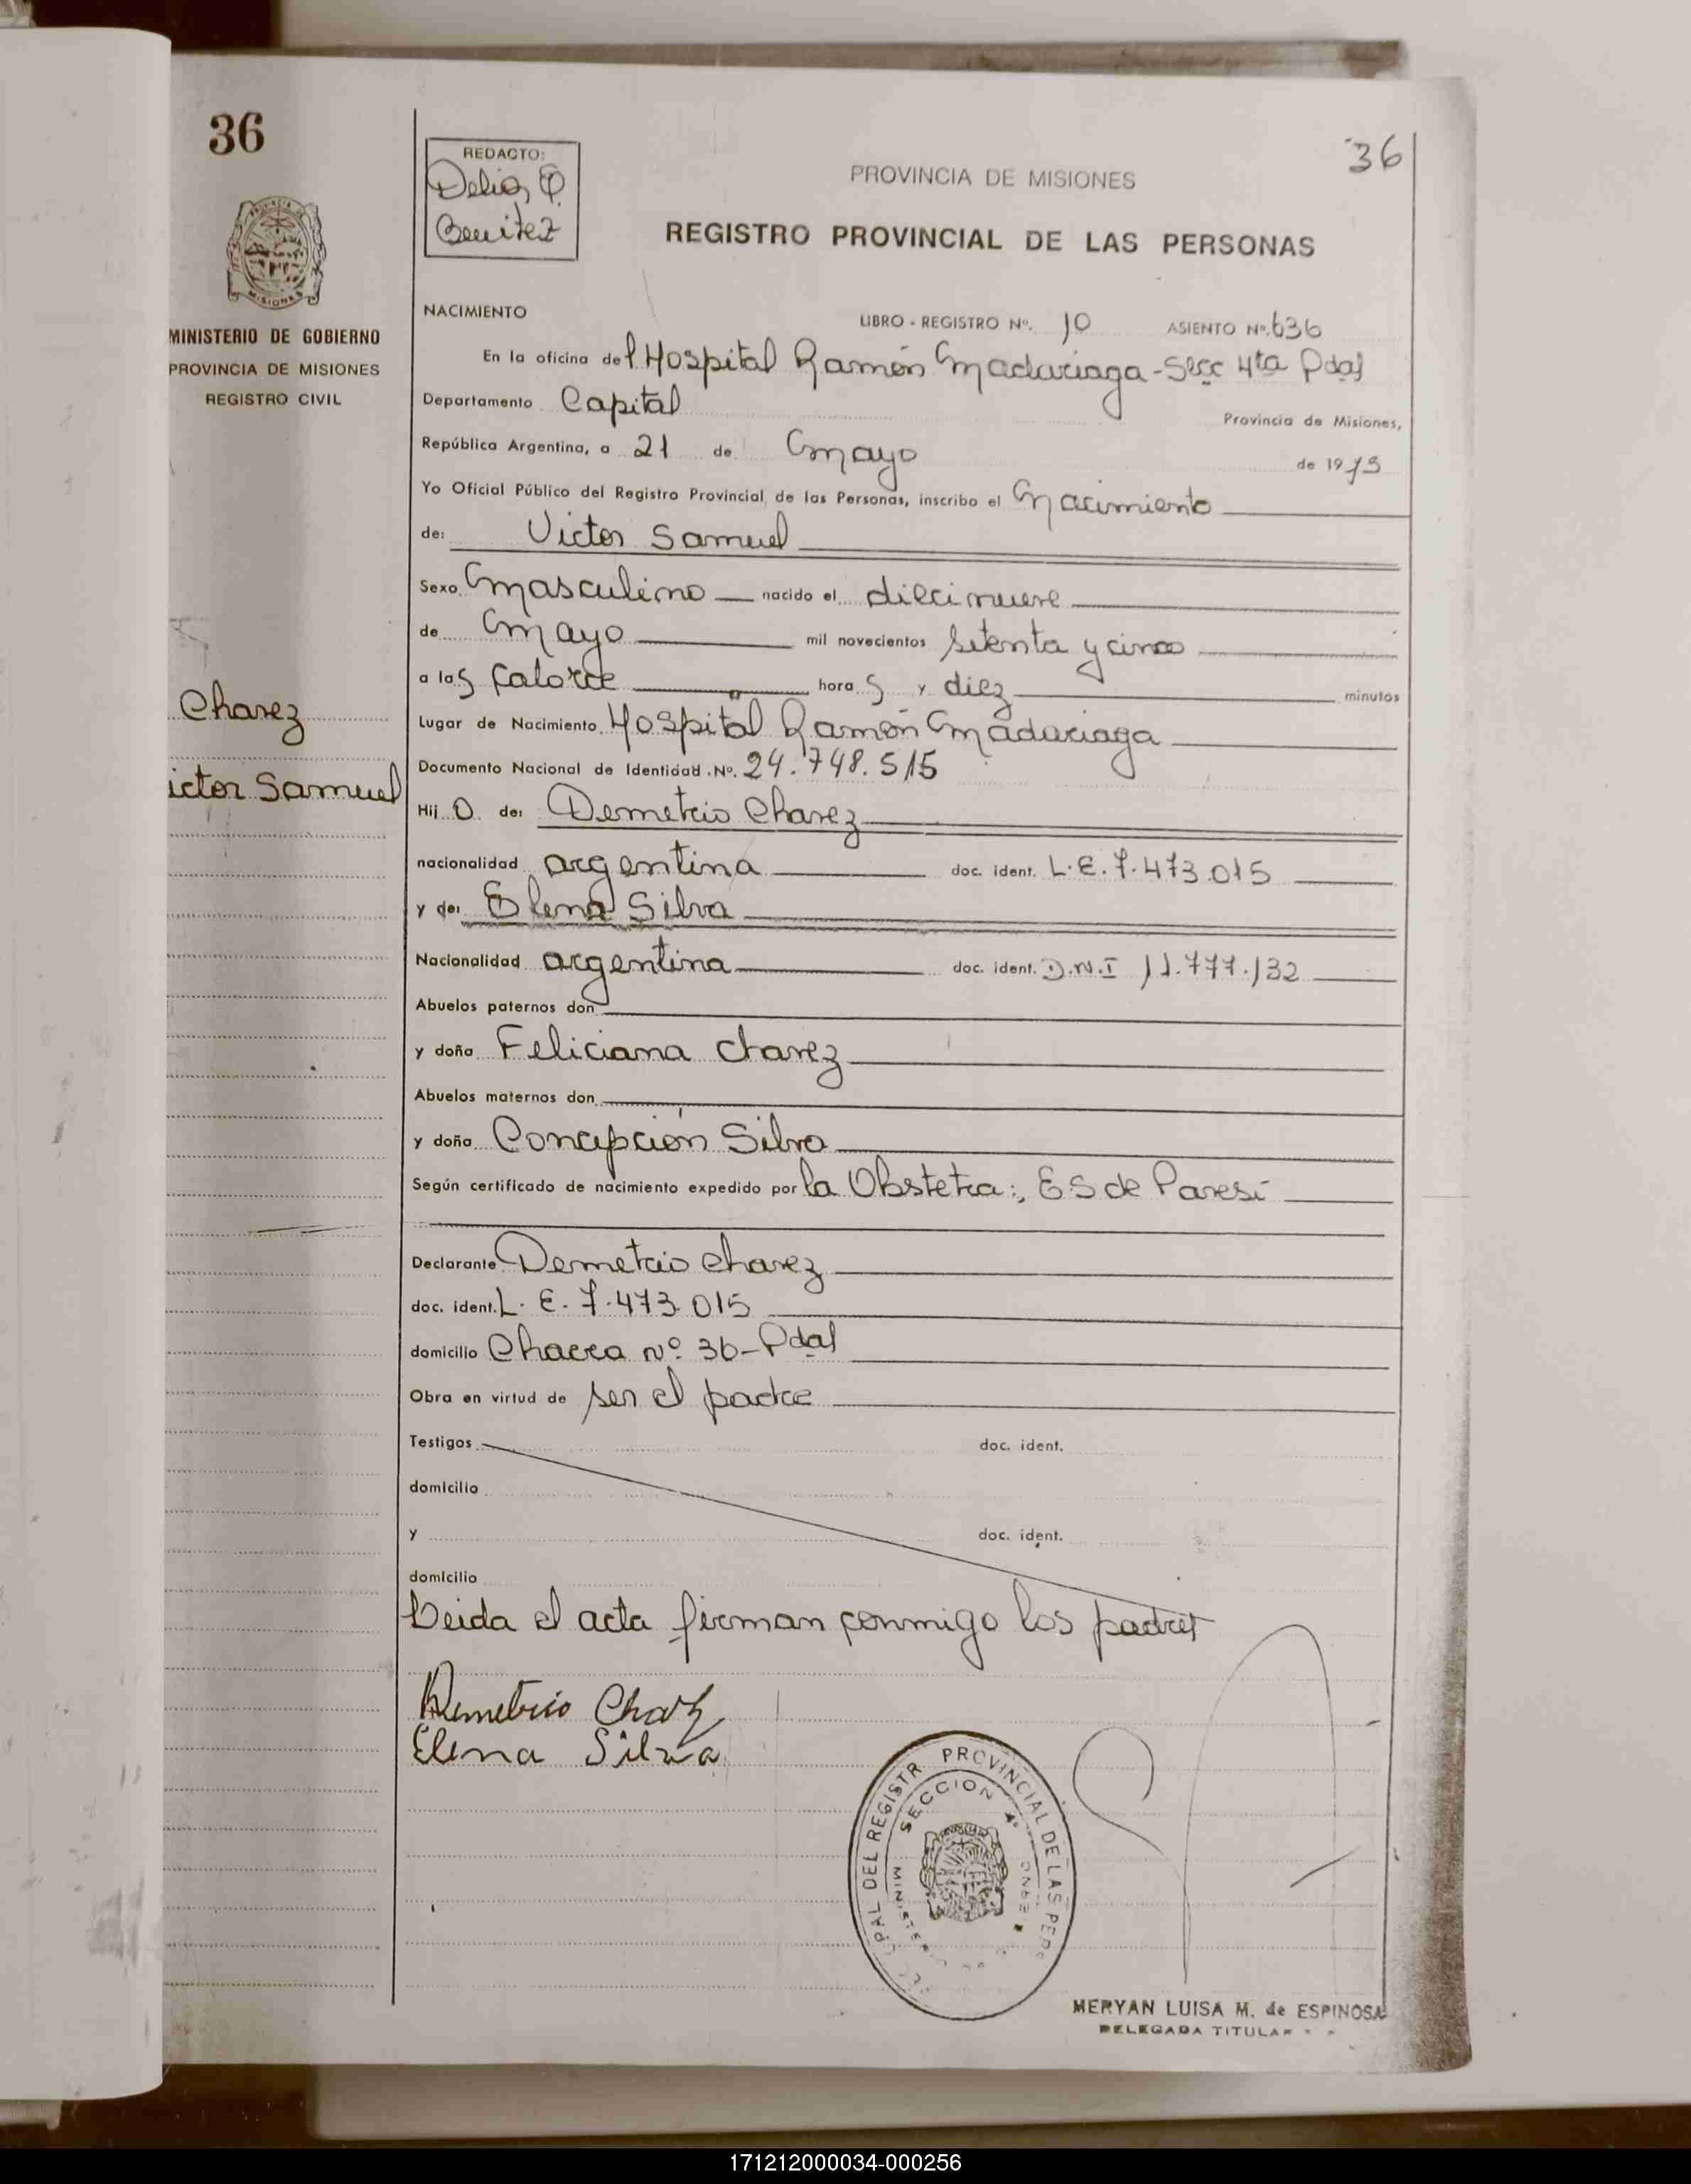 36
MINISTERIO DE GOBIERNO
PROVINCIA DE MISIONES
REGISTRO CIVIL
Chavez
ictor Samuel
REDACTO:
Delia
Benitez
36
PROVINCIA DE MISIONES
REGISTRO PROVINCIAL DE LAS PERSONAS
NACIMIENTO LIBRO - REGISTRO Nº. 10 ASIENTO Nº. 636
En la oficina del Hospital Ramón Madariaga - Secc 4ta Pdas
Departamento Capital Provincia de Misiones,
República Argentina, a 21 de mayo de 1975
Yo Oficial Público del Registro Provincial de las Personas, inscribo el nacimiento
de: Victor Samuel
Sexo masculino nacido el diecinueve
de mayo mil novecientos setenta y cinco
a las catorce horas y diez minutos
Lugar de Nacimiento Hospital Ramón Madariaga
Documento Nacional de Identidad Nº. 24.748.515
Hijo de: Demetrio Chavez
nacionalidad argentina doc. ident. L.E. 7.473.015
y de: Elena Silva
Nacionalidad argentina doc. ident. D.N.I 11.777.132
Abuelos paternos don
y doña Feliciana Chavez
Abuelos maternos don
y doña Concepción Silva
Según certificado de nacimiento expedido por la Obstetra: E S de Paresi
Declarante Demetrio Chavez
doc. ident. L. E. 7.473.015
domicilio Chacra Nº 36 - Pdas
Obra en virtud de ser el padre
Testigos doc. ident.
domicilio
y doc. ident.
domicilio
Leida el acta firman conmigo los padres
Demetrio Chavez
Elena Silva
PAL DEL REGISTR PROVINCIAL DE LAS PER
SECCION 4ª
MERYAN LUISA M. de ESPINOSA
DELEGADA TITULAR
171212000034-000256